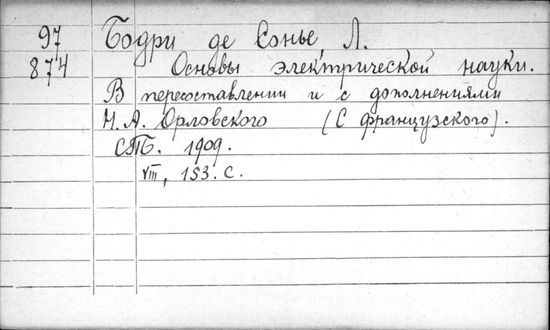 97 Бодри де Сонье, Л.
874 Основы электрической науки.
В пересоставлении и с дополнениями
Н. А. Орловского (С французского).
СПБ. 1909.
VIII, 153. с.